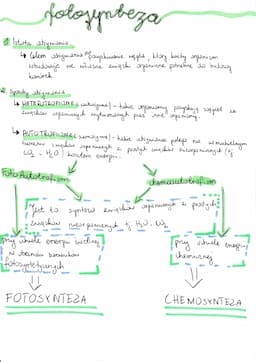 fotosynteza
1) Istota odżywiania
↳ Celem odżywiania jest pozyskiwanie węgla, który każdy organizm
wbudowuje we własne związki organiczne potrzebne do budowy
komórek.
2) Sposoby odżywiania
↳ HETEROTROFIZM (cudzożywność) - takie organizmy pozyskują węgiel ze
związków organicznych wytworzonych przez inne organizmy.
↳ AUTOTROFIZM (samożywność) - takie odżywianie polega na samodzielnym
tworzeniu związków organicznych z prostych związków nieorganicznych (tj.
CO₂ i H₂O) kosztem energii.
Fotoautotrofizm
chemoautotrofizm
Jest to synteza związków organicznych z prostych
związków nieorganicznych tj. H₂O i CO₂
przy udziale energii świetlnej
w obecności barwników
fotosyntetycznych
przy udziale energii
chemicznej
FOTOSYNTEZA
CHEMOSYNTEZA